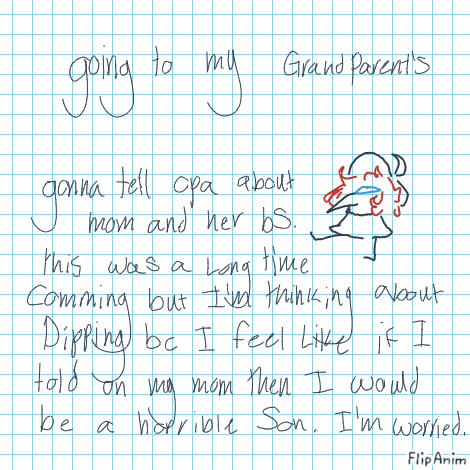 going to my GrandParent's
gonna tell cpa about
mom and her bS.
this was a Long time
Comming but I'm thinking about
Dipping bc I feel Like if I
told on my mom then I would
be a horrible Son. I'm worried.
FlipAnim